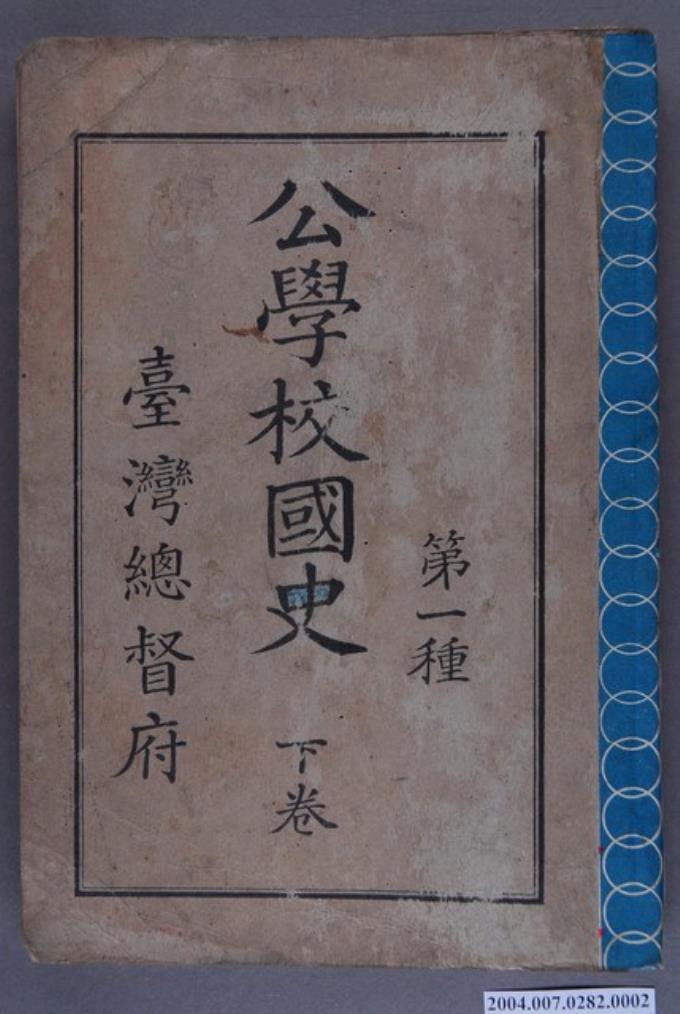 第一種
公學校國史 下卷
臺灣總督府
2004.007.0282.0002